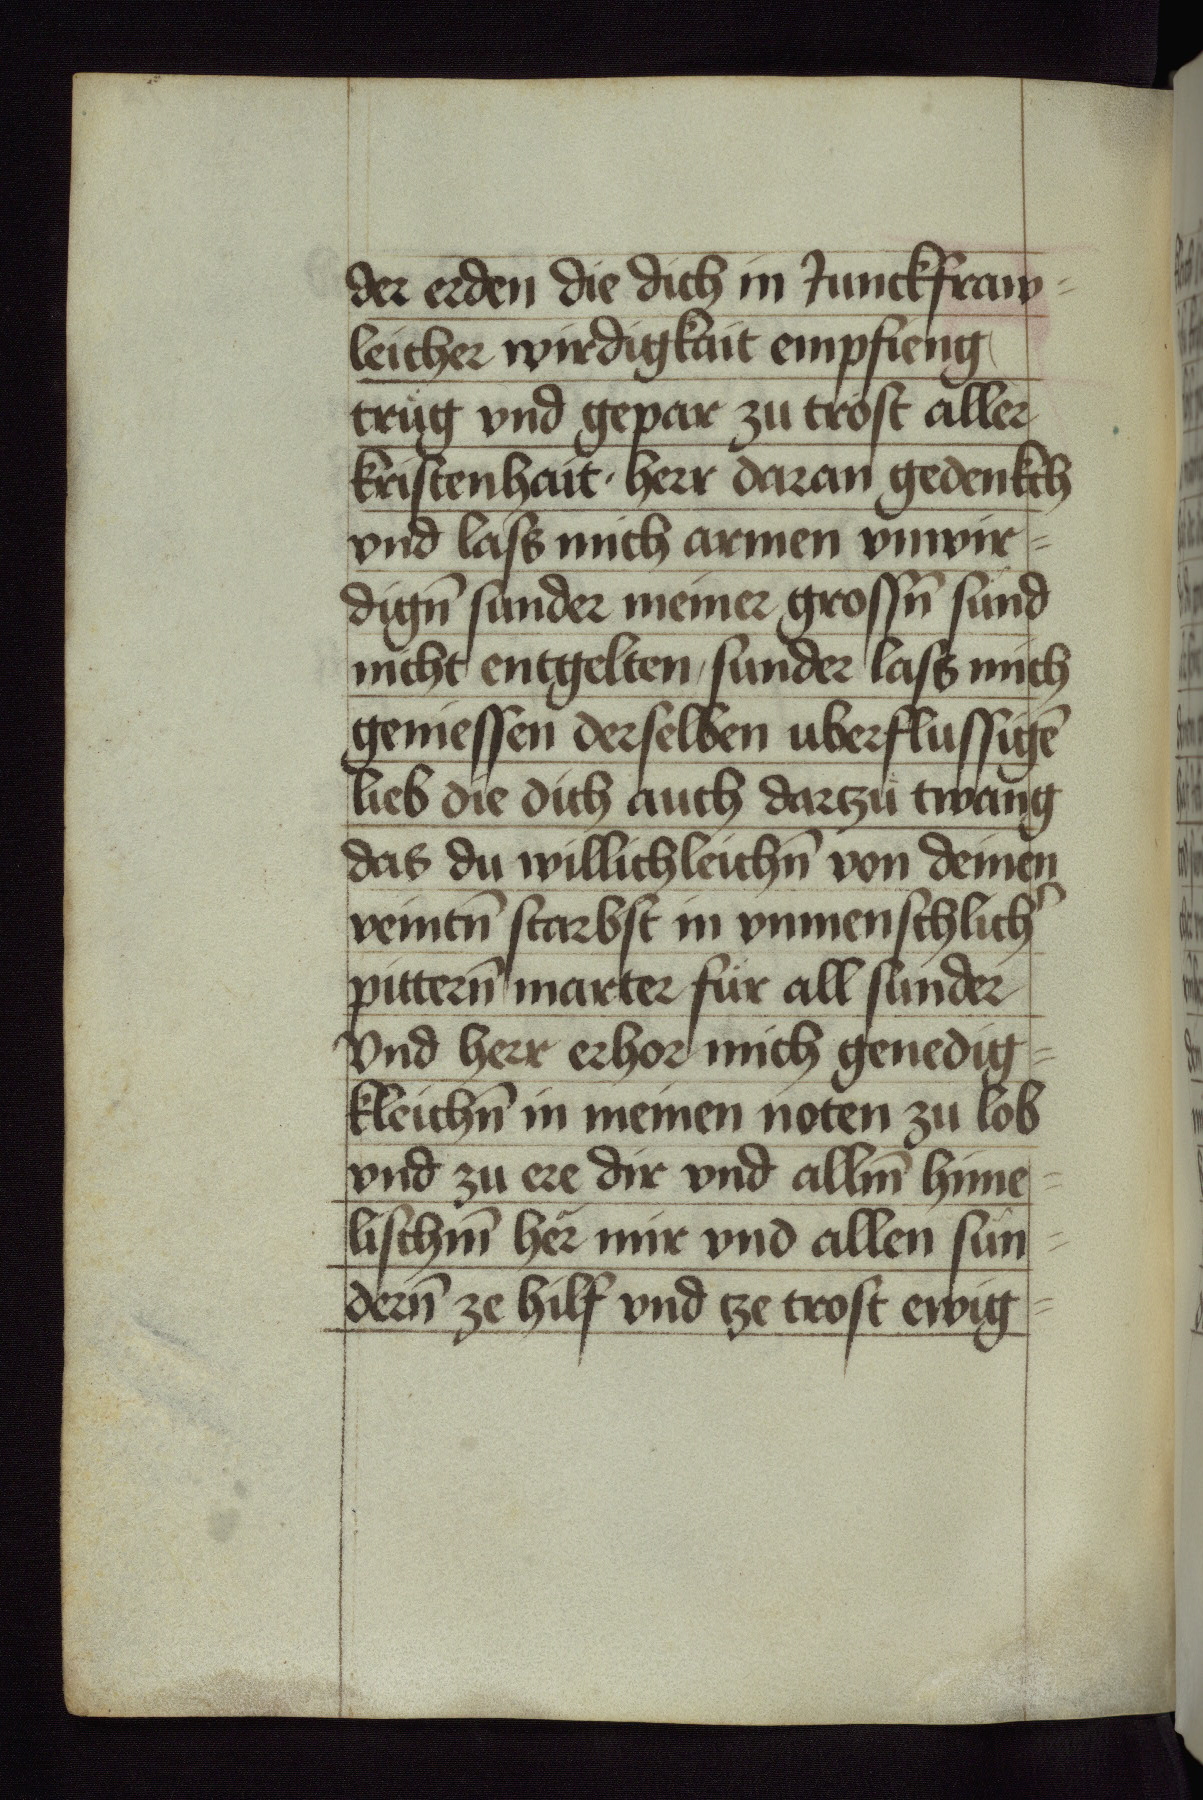 der erden die dich in Junckfraw=
leicher wirdigkait empfieng
trůg vnd gepar zu trost aller
kristenhait · herr daran gedenkch
vnd lass mich armen vnwir=
dign̄ sunder meiner grossn̄ sund
nicht entgelten sunder lass mich
geniessen derselben uberflussigē
lieb die dich auch dartzů twang
das du willichleichn̄ von deinen
veintn̄ starbst in vnmenschlichr
pittern̄ marter für all sunder
Vnd herr erhor mich genedig=
kleichn̄ in meinen noten zu lob
vnd zu ere dir vnd allm̄ hime=
lischm̄ her mir vnd allen sün=
dern̄ ze hilf vnd tze trost ewig=